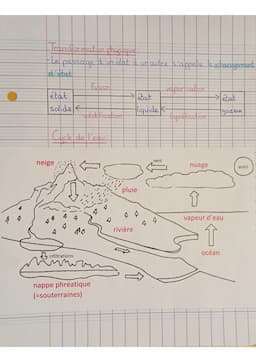 Transformation physique
- Le passage d'un état à un autre s'appelle le changement
d'état.
fusion vaporisation
état état état
solide liquide gazeux
solidification liquéfaction
Cycle de l'eau
neige vent nuage soleil
pluie
vapeur d'eau
rivière
océan
infiltrations
nappe phréatique
(=souterraines)